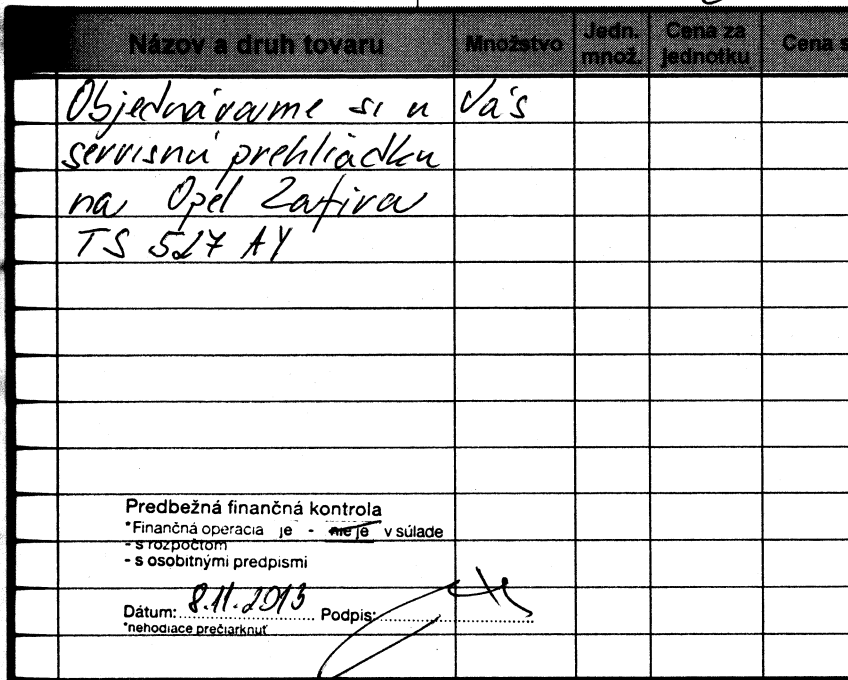 Názov a druh tovaru Množstvo Jedn. množ. Cena za jednotku Cena
Objednávame si u Vás
servisnú prehliadku
na Opel Zafira
TS 527 AY
Predbežná finančná kontrola
*Finančná operacia je - nie je v súlade
- s rozpočtom
- s osobitnými predpismi
Dátum: 8.11.2013 Podpis:
*nehodiace prečiarknuť